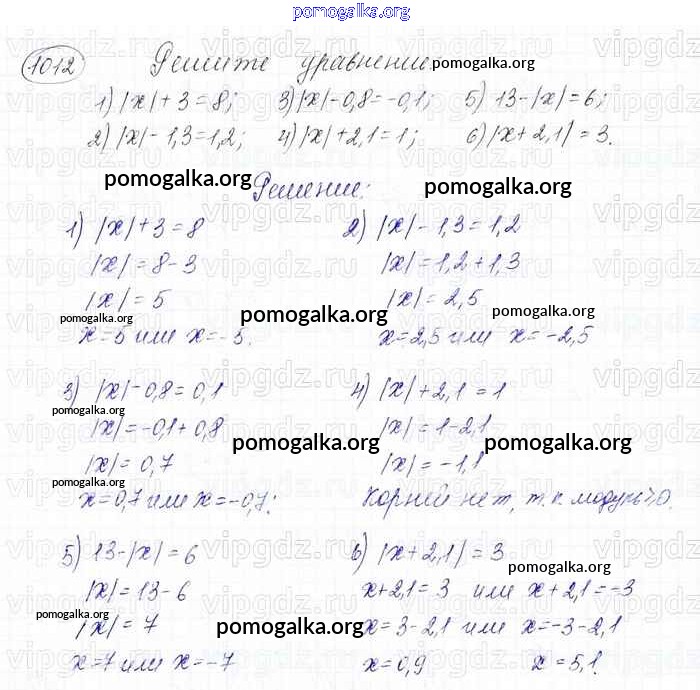 pomogalka.org
1012 Решите уравнение
pomogalka.org
1) |x|+3=8; 3) |x|-0,8=-0,1; 5) 13-|x|=6;
2) |x|-1,3=1,2; 4) |x|+2,1=1; 6) |x+2,1|=3.
pomogalka.org Решение: pomogalka.org
1) |x|+3=8
|x|=8-3
|x|=5
pomogalka.org
x=5 или x=-5.
2) |x|-1,3=1,2
|x|=1,2+1,3
|x|=2,5
pomogalka.org
pomogalka.org
x=2,5 или x=-2,5
3) |x|-0,8=0,1
pomogalka.org
|x|=-0,1+0,8
pomogalka.org
|x|=0,7
pomogalka.org
x=0,7 или x=-0,7.
4) |x|+2,1=1
|x|=1-2,1
pomogalka.org
|x|=-1,1
Корней нет, т.к. модуль ≥0.
5) 13-|x|=6
|x|=13-6
pomogalka.org
|x|=7
pomogalka.org
x=7 или x=-7
6) |x+2,1|=3
pomogalka.org
x+2,1=3 или x+2,1=-3
x=3-2,1 или x=-3-2,1
pomogalka.org
x=0,9 x=5,1.
vipgdz.ru